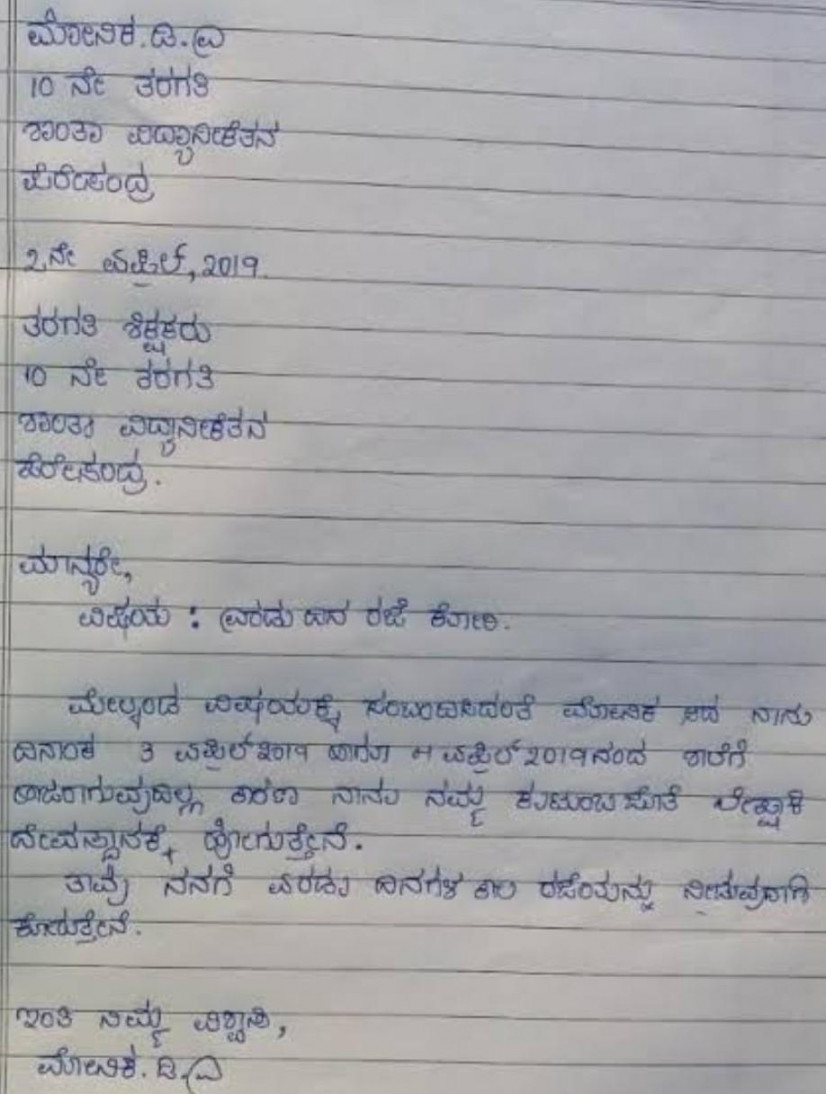 ಮೋನಿಕ.ಡಿ.ವಿ
10 ನೇ ತರಗತಿ
ಶಾಂತಾ ವಿದ್ಯಾನಿಕೇತನ
ಪೆರೇಸಂದ್ರ
2ನೇ ಏಪ್ರಿಲ್, 2019.
ತರಗತಿ ಶಿಕ್ಷಕರು
10 ನೇ ತರಗತಿ
ಶಾಂತಾ ವಿದ್ಯಾನಿಕೇತನ
ಪೆರೇಸಂದ್ರ.
ಮಾನ್ಯರೇ,
ವಿಷಯ : ಎರಡು ದಿನ ರಜೆ ಕೋರಿ.
ಮೇಲ್ಕಂಡ ವಿಷಯಕ್ಕೆ ಸಂಬಂಧಿಸಿದಂತೆ ಮೋನಿಕ ಆದ ನಾನು
ದಿನಾಂಕ 3 ಏಪ್ರಿಲ್ 2019 ಹಾಗೂ 4 ಏಪ್ರಿಲ್ 2019 ನಂದ ಶಾಲೆಗೆ
ಹಾಜರಾಗುವುದಿಲ್ಲ ಕಾರಣ ನಾನು ನಮ್ಮ ಕುಟುಂಬ ಜೊತೆ
ದೇವಸ್ಥಾನಕ್ಕೆ ಹೋಗುತ್ತೇನೆ.
ತಾವು ನನಗೆ ಎರಡು ದಿನಗಳ ಕಾಲ ರಜೆಯನ್ನು ನೀಡುವುದಾಗಿ
ಕೋರುತ್ತೇನೆ.
ಇಂತಿ ನಿಮ್ಮ ವಿಶ್ವಾಸಿ,
ಮೋನಿಕ.ಡಿ.ವಿ